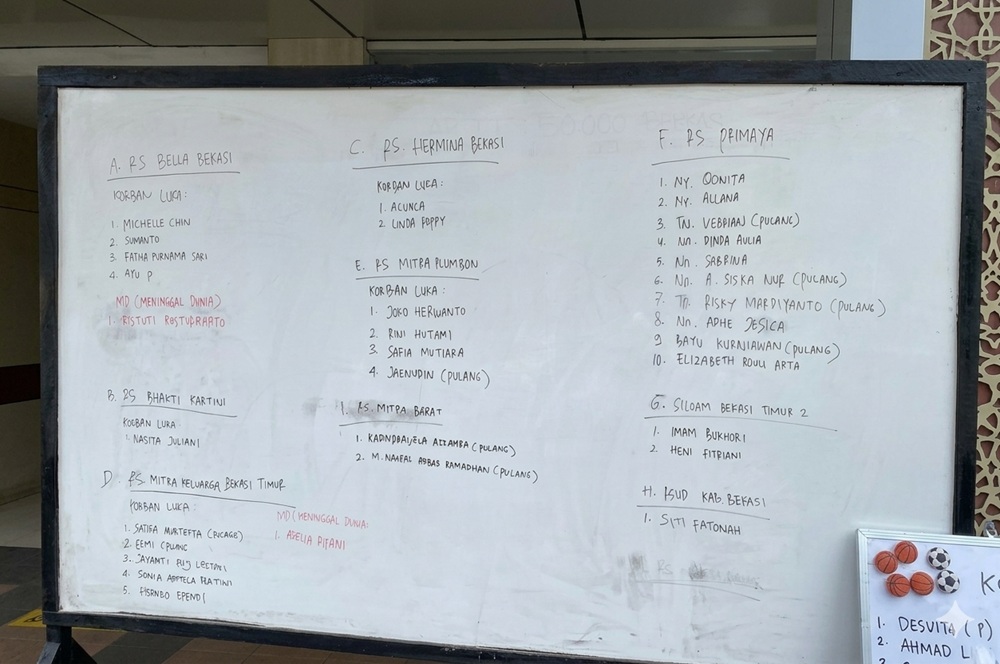 A. RS BELLA BEKASI
KORBAN LUKA:
1. MICHELLE CHIN
2. SUMANTO
3. FATHA PURNAMA SARI
4. AYU P
MD (MENINGGAL DUNIA)
1. RISTUTI
B. RS BHAKTI KARTINI
KORBAN LUKA
NASITA JULIANI
D. RS. MITRA KELUARGA BEKASI TIMUR
KORBAN LUKA:
1. SATIFA
2. EEMI
3. LECTARI
4. SONIA
5. EPENDI
MD (MENINGGAL DUNIA:
1. ADELIA RIFANI
C. RS. HERMINA BEKASI
KORBAN LUKA:
1. ACUNCA
2. LINDA POPPY
E. RS MITRA PLUMBON
KORBAN LUKA:
1. JOKO HERWANTO
2. RINI HUTAMI
3. SAFIA MUTIARA
4. JAENUDIN (PULANG)
I. RS. MITRA BARAT
1. (PULANG)
2. M. ABBAS RAMADHAN (PULANG)
F. RS PRIMAYA
1. NY. QONITA
2. NY. ALLANA
3. TN. VEBRIAN (PULANG)
4. Nn. DINDA AULIA
5. Nn. SABRINA
6. Nn. A. SISKA NUR (PULANG)
7. Tn. RISKY MARDIYANTO (PULANG)
8. Nn. ADHE JESICA
9 BAYU KURNIAWAN (PULANG)
10. ELIZABETH ROULI ARTA
G. SILOAM BEKASI TIMUR 2
1. IMAM BUKHORI
2. HENI FITRIANI
H. RSUD KAB. BEKASI
1. SITI FATONAH
1. DESVITA (P)
2. AHMAD L